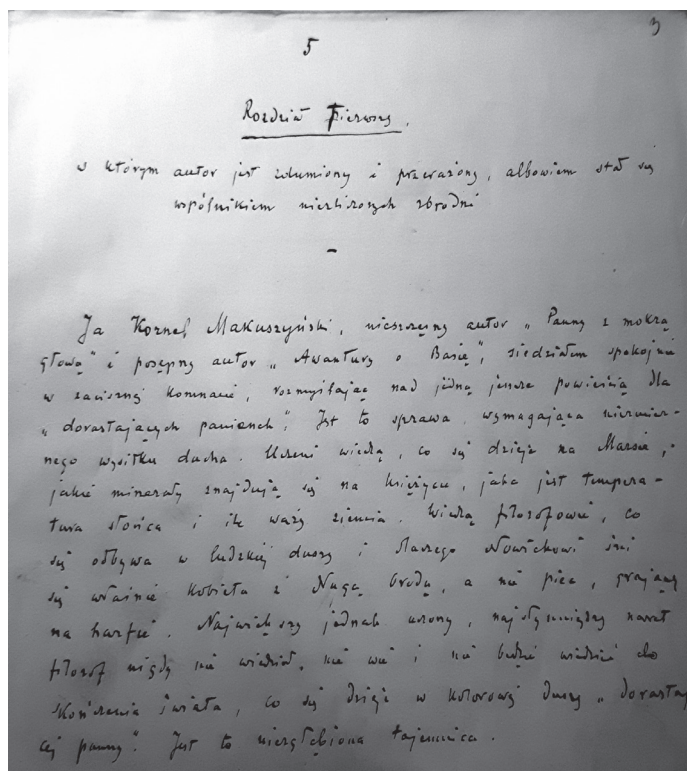 3
5
Rozdział Pierwszy.
w którym autor jest zdumiony i przerażony, albowiem stał się
wspólnikiem niezliczonych zbrodni
—
Ja Kornel Makuszyński, nieszczęsny autor „Panny z mokrą
głową” i posępny autor „Awantury o Basię”, siedziałem spokojnie
w zacisznej komnacie, rozmyślając nad jedną jeszcze powieścią dla
„dorastających panienek”. Jest to sprawa, wymagająca niezmier-
nego wysiłku ducha. Uczeni wiedzą, co się dzieje na Marsie,
jakie minerały znajdują się na księżycu, jaka jest tempera-
tura słońca i ile waży ziemia. Wiedzą filozofowie, co
się odbywa w ludzkiej duszy i dlaczego Nowickowi śni
się właśnie kobieta z brodą, a nie pies, grający
na harfie. Największy jednak uczony, najsłynniejszy nawet
filozof nigdy nie wiedział, nie wie i nie będzie wiedzieć do
skończenia świata, co się dzieje w kolorowej duszy „dorastaj
cej panny”. Jest to niezgłębiona tajemnica.